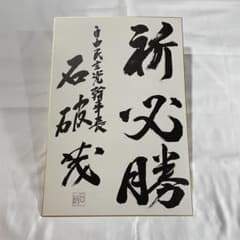 祈必勝
自由民主党幹事長
石破茂